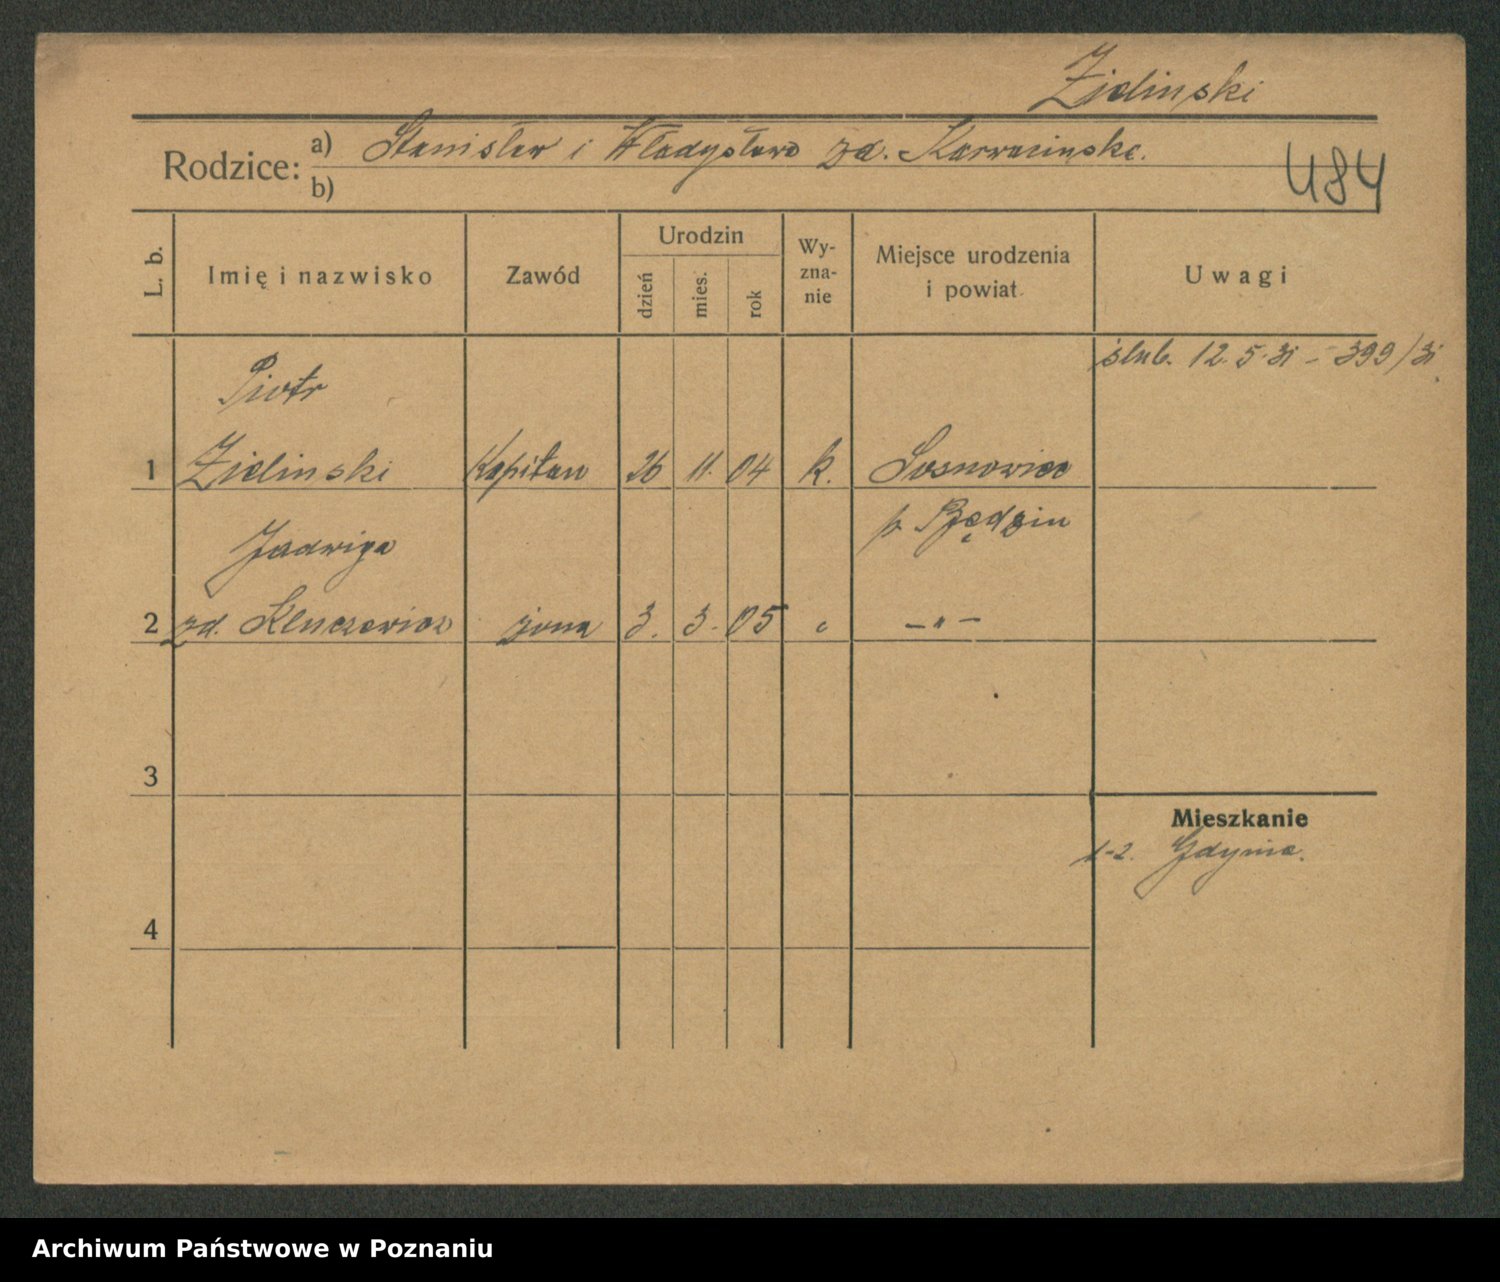 Zieliński
Rodzice: a) Stanisław i Władysława zd. Karwacińska.
b)
484
L. b. Imię i nazwisko Zawód Urodzin dzień mies. rok Wy-zna-nie Miejsce urodzenia i powiat Uwagi
ślub. 12.5.31 – 399/31
Piotr
1 Zieliński Kapitan 26 11. 04 k. Sosnowiec
p. Będzin
Jadwiga
2 zd. Kluczewicz żona 3. 3. 05 " – " –
3
Mieszkanie
1-2. Gdynia.
4
Archiwum Państwowe w Poznaniu